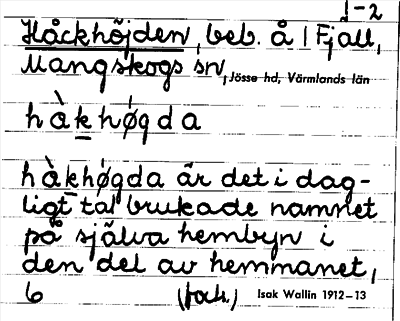 1-2
Håckhöjden, beb. å 1 Fjäll,
Mangskogs sn, Jösse hd, Värmlands län
hàk̲hø̀gda
hàk̲hø̀gda är det i dag-
ligt tal brukade namnet
på själva hembyn i
den del av hemmanet,
6 Isak Wallin 1912–13